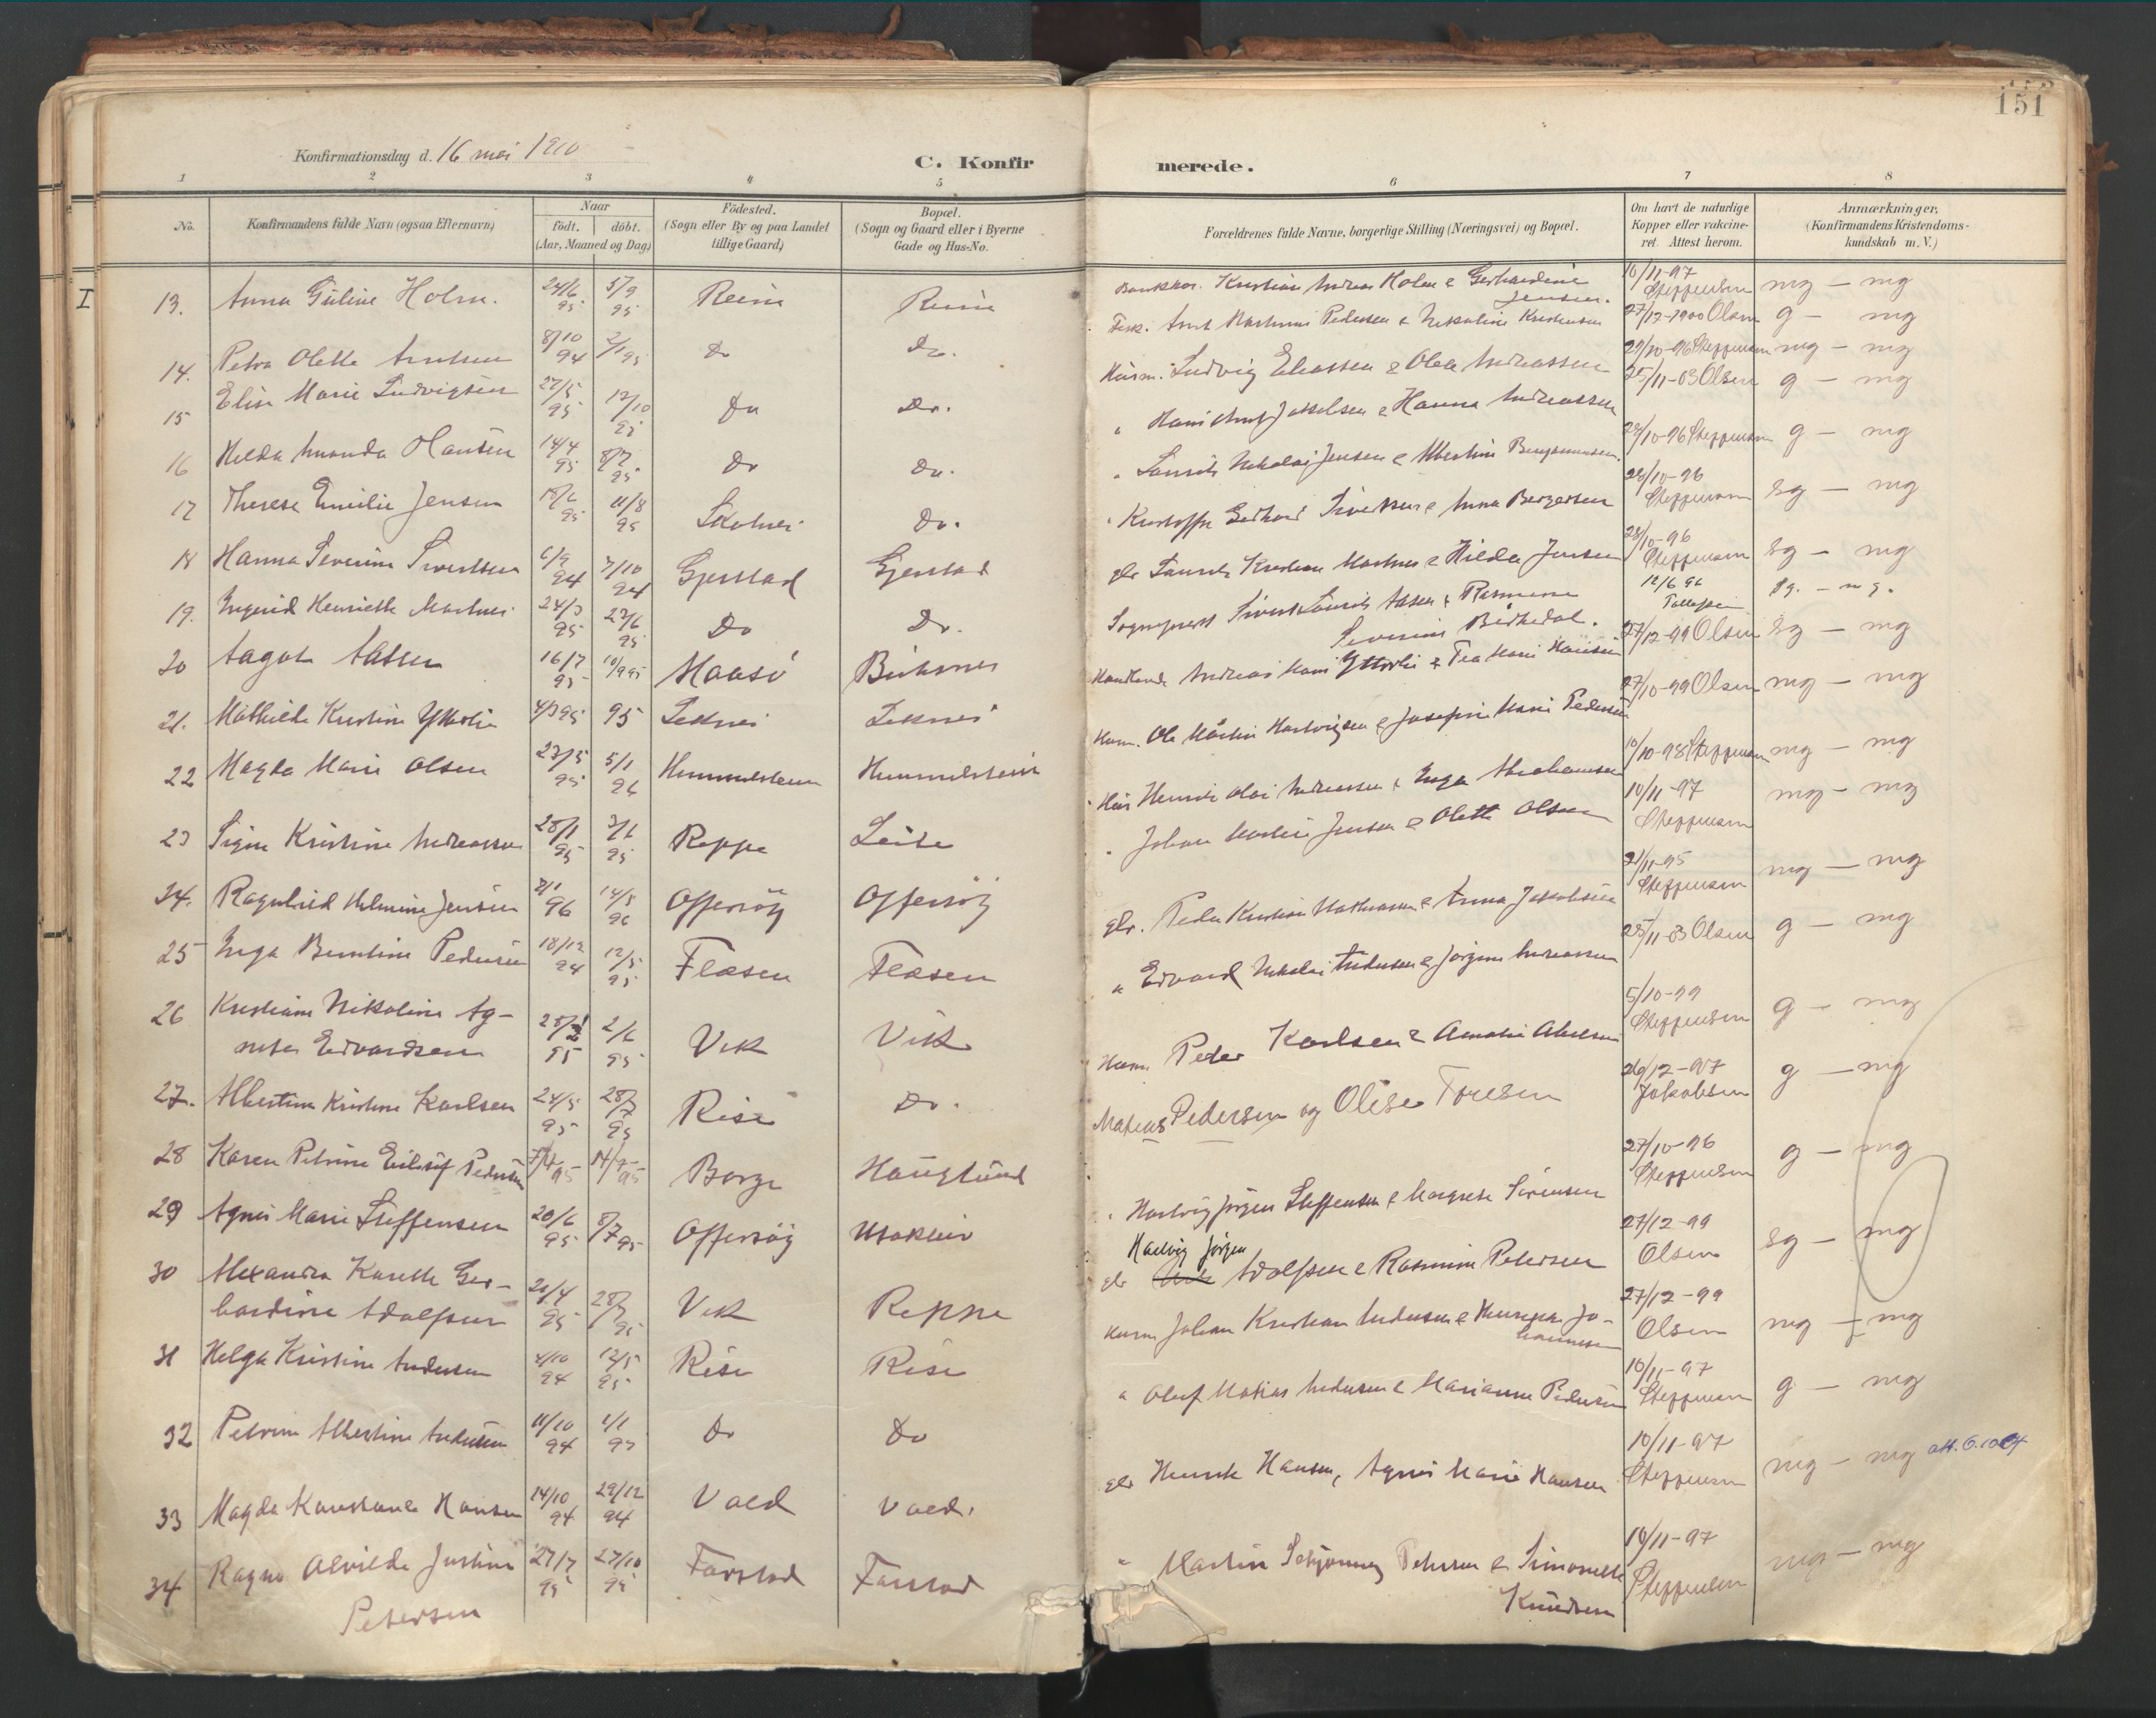 151
Konfirmationsdag d. 16 mai 1910
C. Konfirmerede.
1 2 3 4 5 6 7 8
No.
Konfirmandens fulde Navn (ogsaa Efternavn)
Naar
født. døbt.
(Aar, Maaned og Dag)
Fødested.
(Sogn eller By og paa Landet
tillige Gaard)
Bopæl.
(Sogn og Gaard eller i Byerne
Gade og Hus-No.
Forældrenes fulde Navne, borgerlige Stilling (Næringsvei) og Bopæl.
Om havt de naturlige
Kopper eller vakcine-
ret. Attest herom.
Anmærkninger,
(Konfirmandens Kristendoms-
kundskab m. V.)
I
13. Anna Guline Holm. 24/6 95 5/9 95 Reine Reine Kristian Andreas Holm & Gerhardine Jensen. 10/11-97 Steffensen mg - mg
14. Petra Olette Arntsen 8/10 94 2/1 95 Do Do. Fisk. Arnt Martinus Pedersen & Nikoline Kristensen 27/12-1900 Olsen g - mg
15 Elise Marie Ludvigsen 27/5 95 12/10 95 Do Do. Husm. Ludvig Eliassen & Olea Andreassen 29/10-96 Steffensen mg - mg
16 Helda Amanda Hansen 14/4 95 8/7 95 Do Do. " Hans Jakobsen & Hanna Andreassen 25/11-03 Olsen g - mg
17 Therese Emilie Jensen 18/6 95 11/8 95 Do. " Laurits Nikolai Jensen & Albertine 29/10-96 Steffensen g - mg
18 Hanna Severine Sivertsen 6/9 94 7/10 94 Gjerstad Gjerstad " Kristoffer Gerhard Sivertsen & Anna Bergersen 28/10-96 Steffensen sg - mg
19. Ingrid Henriette Martnes 24/3 95 23/6 95 Do Do. gbr Laurits Kristian Martnes & Hilda Jensen 28/10-96 Steffensen sg - mg
20 Aagot Aasen 16/7 95 10/9 95 Maasö Buksnes Sogneprest Sivert Laurits Aasen & Rasmine Severine 12/6 96 Tollefsen sg. - mg.
21. Mathilde Kristine Ytterlie 4/3 95 95 Leknes Leknes Handlende Andreas Hans Ytterlie & Tea Marie Hansen 27/12-99 Olsen sg - mg
22 Magda Marie Olsen 23/5 95 5/1 96 Himmelstein Himmelstein Husm. Ole Martin Hartvigsen & Josefine Marie Pedersen 27/10-99 Olsen mg - mg
23 Signe Kristine Andreassen 28/1 95 3/6 95 Reppe Leite Hus Henrik Olai Andreassen & Inga Abrahamsen 10/10-98 Steffensen mg - mg
24. Ragnhild Helmine Jensen 2/1 96 14/5 96 Offersöy Offersöy " Johan Martin Jensen & Olette Olsen 10/11-97 Steffensen mg - mg
25 Inga Berntine Pedersen 18/12 94 12/5 95 Flæsen Flæsen gbr. Peder Kristian & Anna Jakobsen 21/11-95 Steffensen mg - mg
26 Kristiane Nikoline Ag-
netes Edvardsen 28/2 95 2/6 95 Vik Vik " Edvard Nikolai Andersen & Jörgine Andreassen 25/11-03 Olsen g - mg
27. Albertine Kristine Karlsen 24/5 95 28/7 95 Rise Do. Husm Peder Karlsen & Amalie 5/10-99 Steffensen g - mg
28 Karen Petrine Pedersen 7/4 95 14/7 95 Borge Hauglund Matias Pedersen og Olise Toresen 26/12-97 Jakobsen g - mg
29 Agnes Marie Steffensen 20/6 95 8/7 95 Offersöy Utakleiv " Hartvig Jörgen Steffensen & Margrete Sörensen 27/10-96 Steffensen g - mg
30 Alexandra Karette Ger-
hardine Adolfsen 20/4 95 28/7 95 Vik Reppe gbr Hartvig Jörgen Adolfsen & Rasmine Petersen 27/12-99 Olsen sg - mg
31 Helga Kristine Andersen 4/10 94 12/5 95 Rise Rise Husm Johan Kristian Andersen & Jo-
hannesen 27/12-99 Olsen mg - mg
32 Petrine Albertine Andersen 11/10 94 1/1 95 Do Do " Olaf Matias Andersen & Marianne Pedersen 10/11-97 Steffensen g - mg
33 Magda Konstanse Hansen 14/10 94 29/12 94 Vold Vold. gbr Henrik Hansen, Agnes Marie Hansen 10/11-97 Steffensen mg - mg
34 Ragna Alvilde Justine
Petersen 27/7 95 27/10 95 Farstad Farstad " Martin Schjönning Petersen & Simonette
Knudsen 10/11-97 Steffensen mg - mg